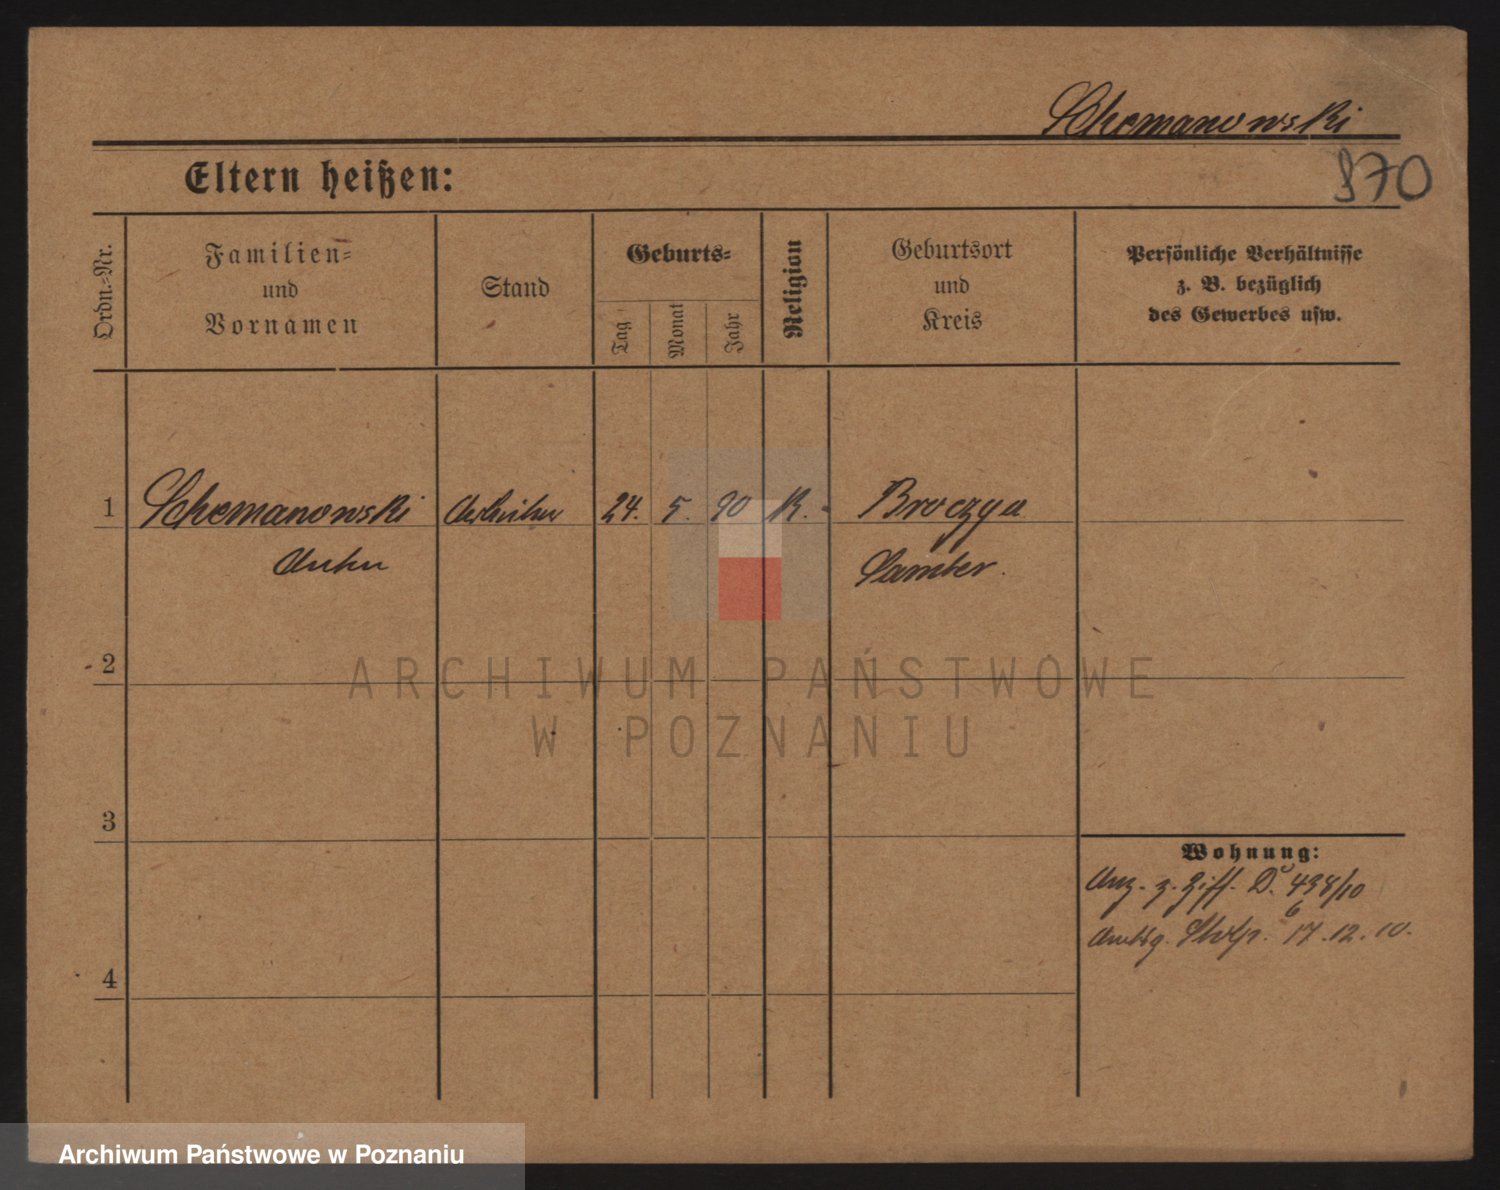 Schemanowski
870
Eltern heißen:
Ordn.=Nr.
Familien=
und
Vornamen
Stand
Geburts=
Tag
Monat
Jahr
Religion
Geburtsort
und
Kreis
Persönliche Verhältnisse
z. B. bezüglich
des Gewerbes usw.
1 Schemanowski Arbeiter 24. 5. 90 K. Broczyn
Samter.
2
3
4
Wohnung:
Anz. z. Ziff. D. 498/10
6
Amtsg. Stolp. 17.12.10.
ARCHIWUM PAŃSTWOWE
W POZNANIU
Archiwum Państwowe w Poznaniu